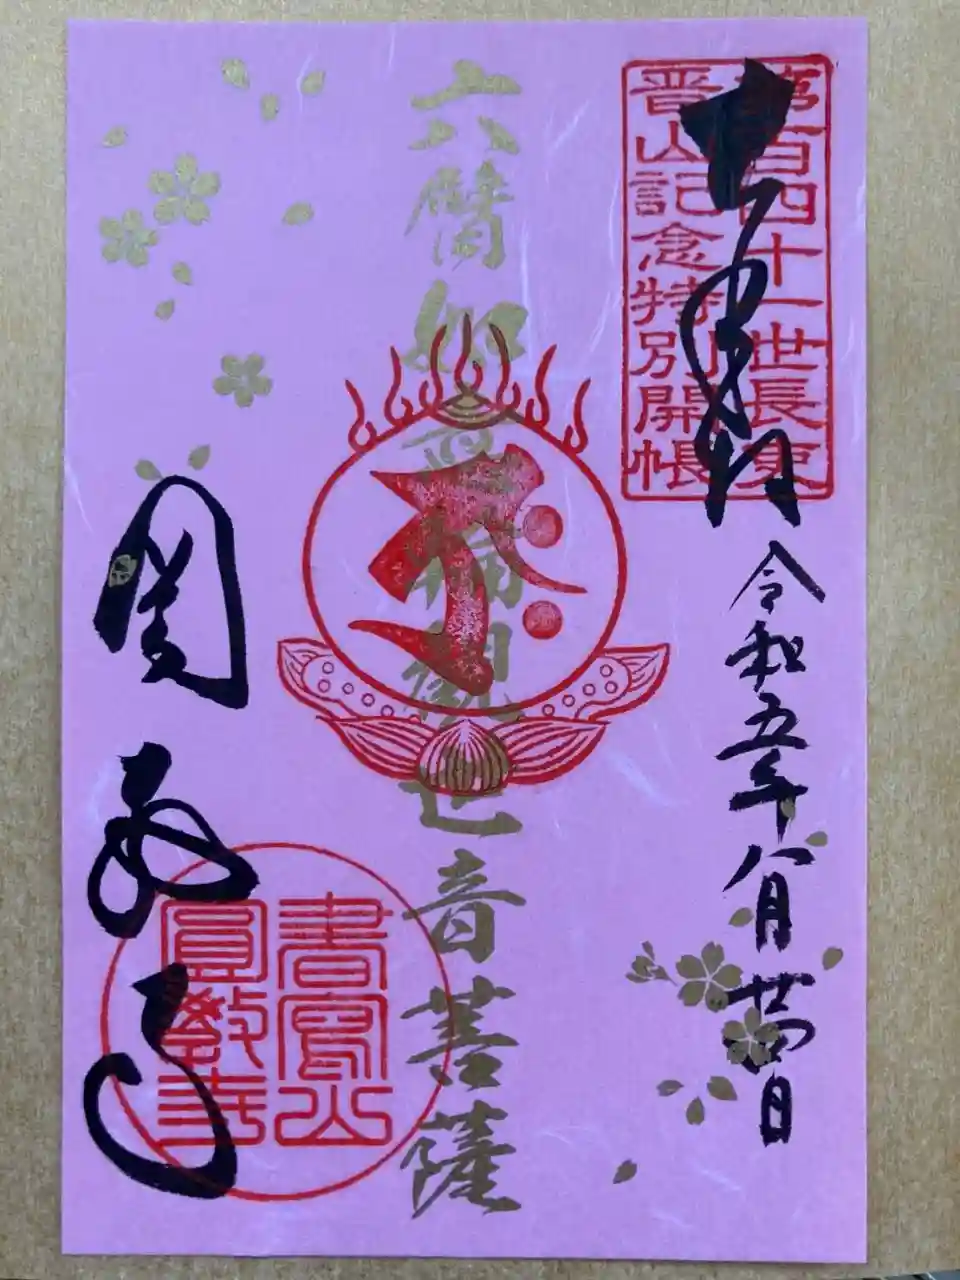 第百四十一世長吏
晋山記念特別開帳
奉拝
令和五年八月廿四日
六臂如意輪観世音菩薩
ह्रीः
圓教寺
書寫山
圓教寺